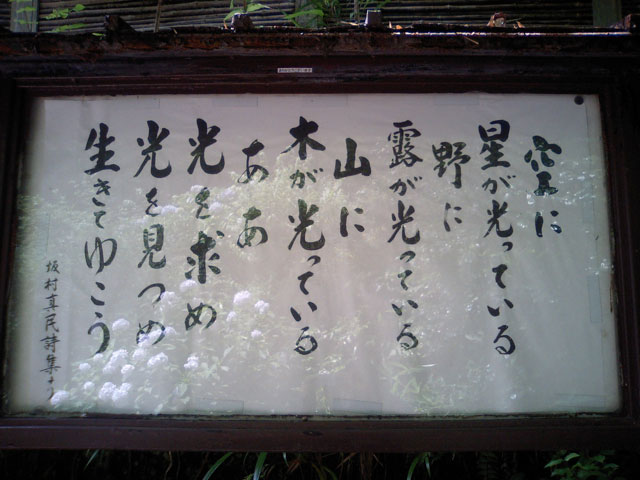 空に
星が光っている
野に
露が光っている
山に
木が光っている
ああ
光を求め
光を見つめ
生きてゆこう
坂村真民詩集より